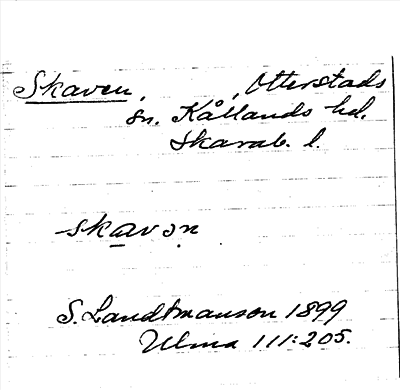 Skaven, , Otterstads
sn. Kållands hd.
Skarab. l.
skavən
S. Landtmanson 1899
Ulma 111:205.